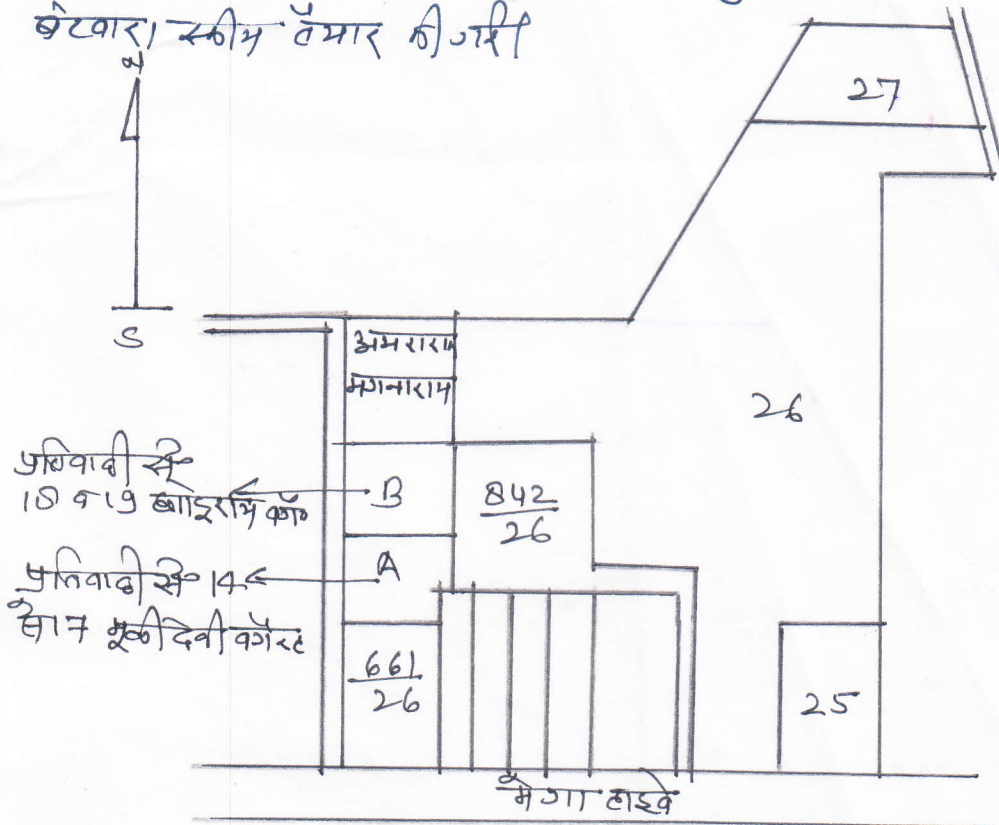 बंटवारा स्कीम तैयार की गई।
N
S
27
अमराराम
मगनाराम
26
प्रतिवादी सं०
18 व 19 वगै०
B
842
26
प्रतिवादी सं० 14
से 17 मूली देवी वगैरह
A
661
26
25
मेगा हाइवे